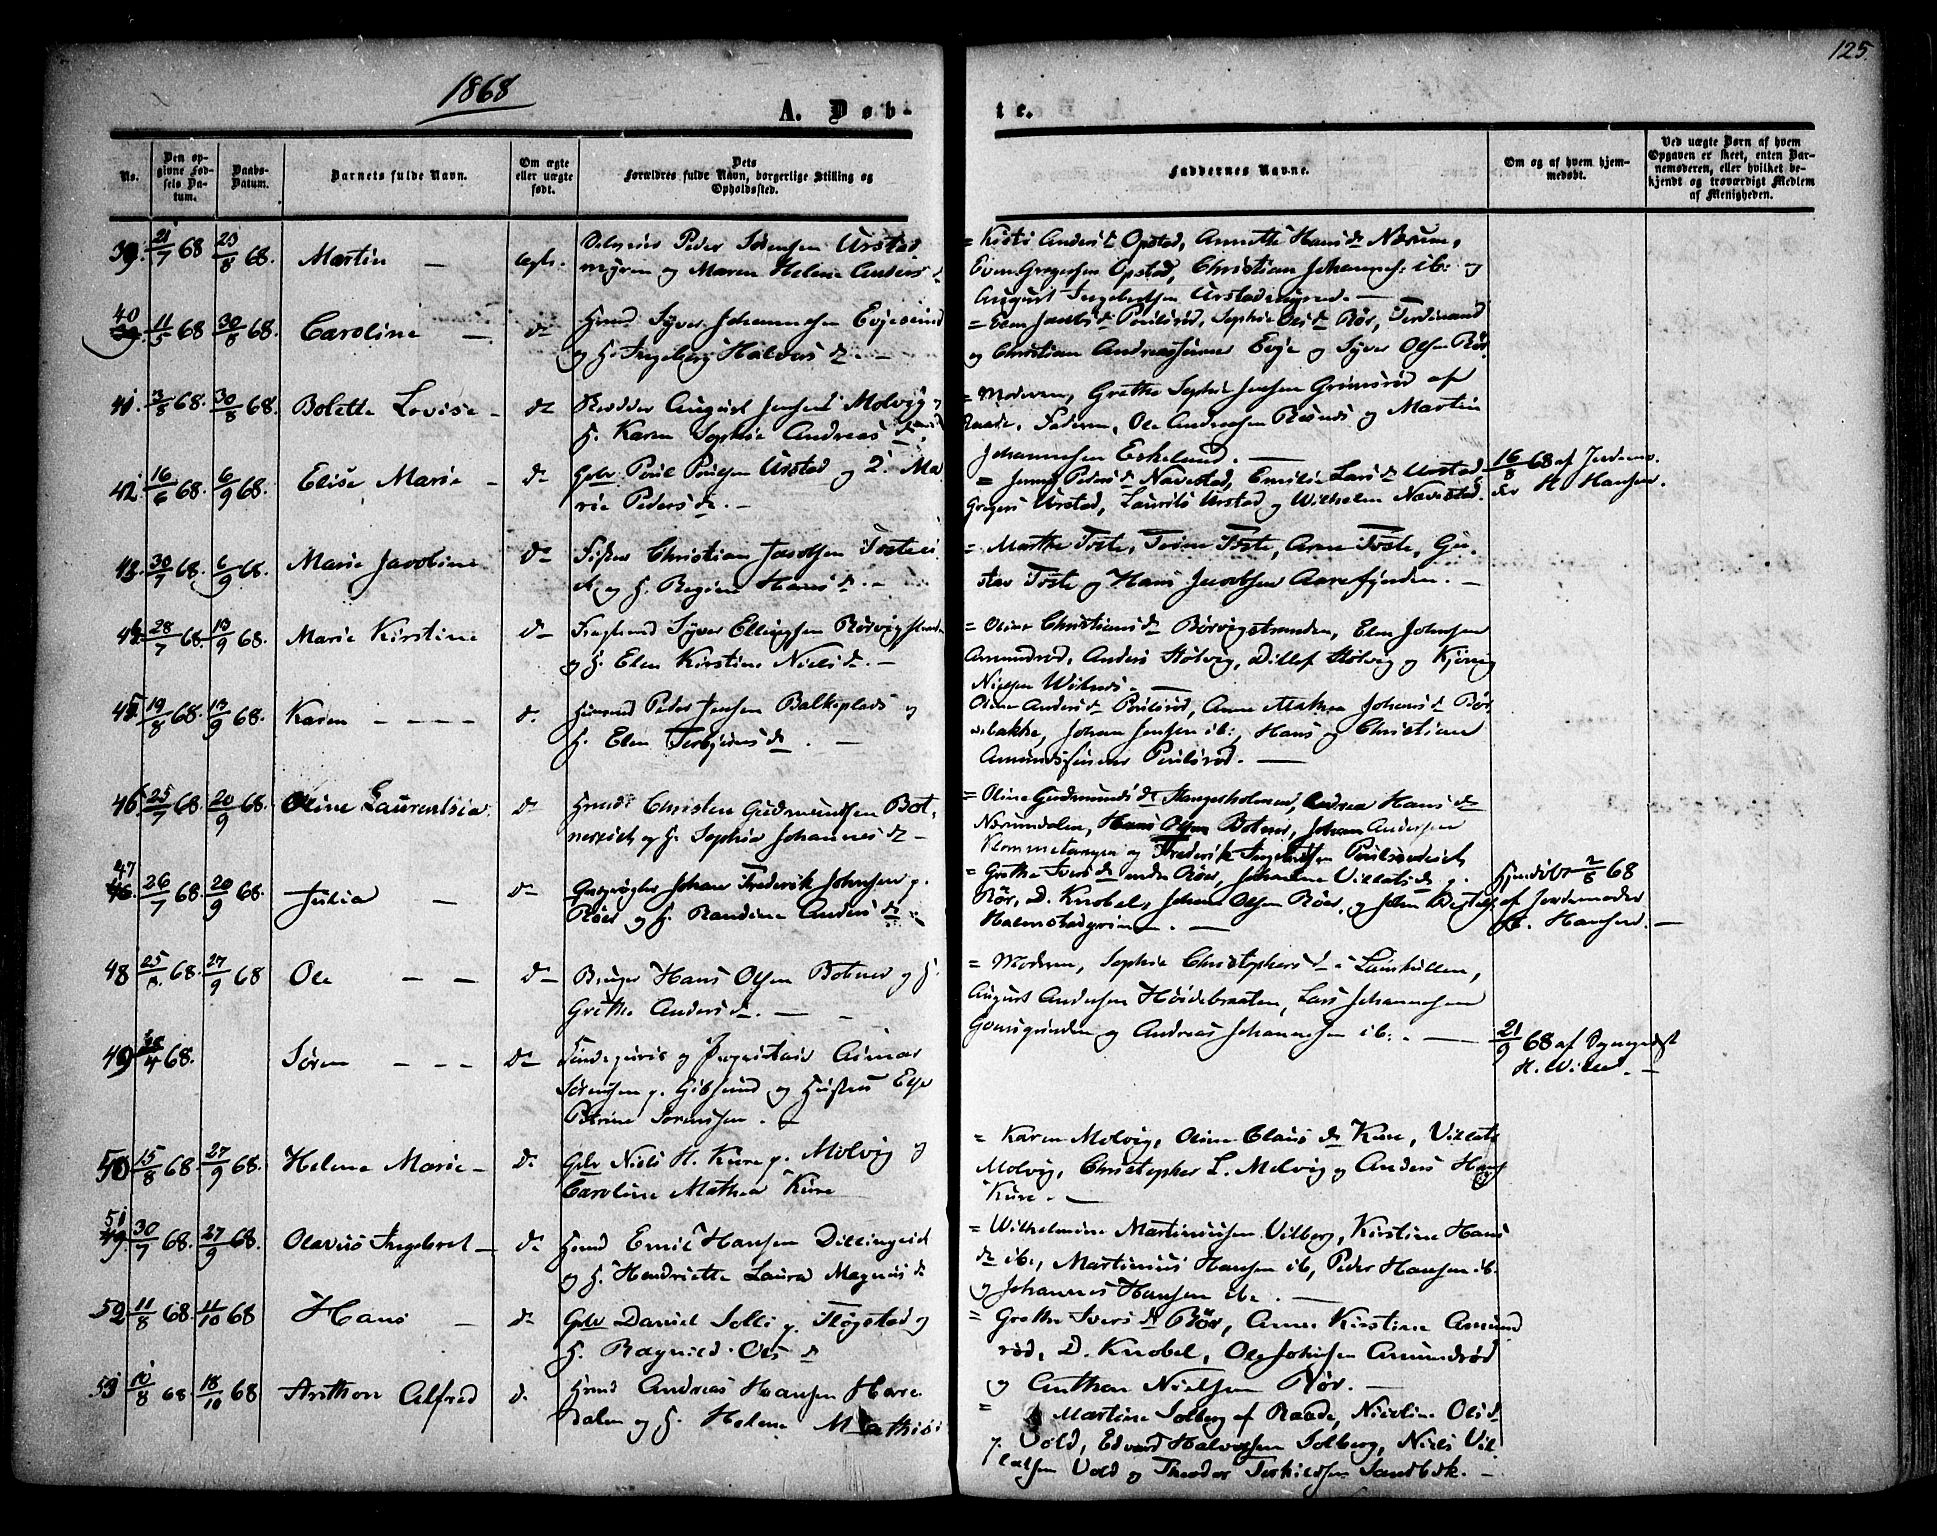 125.
1868
A. Døb-
te.
No.
Den op-
givne Fød-
sels Da-
tum.
Daabs-
Datum.
Barnets fulde Navn.
Om ægte
eller uægte
født.
Dets
Forældres fulde Navn, borgerlige Stilling og
Opholdssted.
Faddernes Navne.
Om og af hvem hjem-
medøbt.
Ved uægte Børn af hvem
Opgaven er skeet, enten Bar-
nemoderen, eller hvilket be-
kjendt og troværdigt Medlem
af Menigheden.
39. 21/7 68 23/8 68. Martin — ægte. Peder Sørensen Urstad
myren og Maren Helene Anders d.
= Kirsti Anders d. Opstad, Annette Hans d. Nærum,
Even Gregersen Opstad, Christian Johannes: ib: og
August Ingebretsen Urstadmyren. —
40 11/5 68 30/8 68. Caroline — do Husmd Syver Johannesen Evjesund
og H. Ingeborg Halvors d. —
= Elen Jacobs d. Poulsrød, Sophie Ols d. Rør, Ferdinand
og Christian Andreassønner Evje og Syver Olsen Rør.
41. 3/8 68. 30/8 68. Bolette Lovise — do August Jensen Molvig og
H. Karen Sophie Andreas d.
= Moderen, Grethe Sophie Jensen Grimsrød af
Raade, Faderen, Ole Andreasen Rosnes og Martin
Johannesen Eskelund. —
42 16/6 68. 6/9 68. Elise Marie — do Gdbr. Poul Poulsen Urstad og Ma
rie Peders d. —
= Jenny Peders d. Navestad, Emilie Lars d. Urstad,
Gregers Urstad, Laurits Urstad og Wilhelm Navestad.
16/8 68 af Jordemo.
der H. Hansen.
43. 30/7 68. 6/9 68. Marie Jacobine do Fisker Christian Jacobsen Tøste
og H. Regine Hans d. —
= Marthe Tøste, Trine Tøste, Arne Tøste, Gu-
stav Tøste og Hans Jacobsen Aarefjorden. —
44. 28/7 68. 13/9 68. Marie Kirstine do Syver Ellingsen Rørvigstranden
og H. Elen Kirstine Niels d. —
= Oline Christians d. Rørvigstranden, Elen Johnsen
Amundrød, Anders Støtvig, Ditlef Støtvig og
Nielsen —
45 19/8 68. 13/9 68. Karen — — — do Husmd Peder Jensen Balkeplads og
H. Elen Torbjørns d. —
Oline Anders d. Poulsrød, Anne Mathea Johans d. Rør
bakke, Johan Jensen ib:, Hans og Christian
Amundssønner Poulsrød. —
46 25/7 68. 20/9 68. Oline Laurentsia do Husmd Christen Gudmundsen Bot-
nereiet og H. Sophie Johannes d. —
= Oline Gudmunds d. Kongesholmen, Andrea Hans d.
Nærumdalen, Hans Olsen Botner, Johan Andersen
Klommetangen og Frederik Ingebretsen Poulsrødeiet
47 26/7 68. 20/9 68. Julia — do Johan Frederik Johnsen p.
Røer og H. Randine Anders d. —
= Grethe Ivers d. Røer, Johanne Villats d. p.
Rør, D. Knobel, Johan Olsen Røer, og Johan
Halmstadgrinden. —
Hjemdøbt 2/8 68
af Jordemoder
H. Hansen. —
48 25/8 68. 27/9 68 Ole — — do Bruger Hans Olsen Botner og H.
Grethe Anders d. — —
= Moderen, Sophie Christophers d.
August Andersen Høidebraaten, Lars Johannesen
Gonsgrinden og Andreas Johannesen ib: —
49 28/4 68. Søren — — — do
Sørensen p. Gibsund og Hustru Else
Petrine Sørensen. —
21/9 68 af Sogneprest
H. Willed. —
50 15/8 68. 27/9 68. Helene Marie — do Gdbr Niels H. Kure p. Molvig og
Caroline Mathea Kure
= Karen Molvig, Oline Claus d. Kure, Villats
Molvig, Christopher L. Molvig og Anders Hans
Kure. —
51 30/7 68. 27/9 68. Olavus Ingebret — do Husmd Emil Hansen Dillingeiet
og H. Hendriette Laura Magnus d.
= Wilhelmine Martiniussen Vilberg, Kirstine Hans
d. ib., Martinius Hansen ib., Peder Hansen ib.
og Johannes Hansen ib. —
52 11/8 68 11/10 68 Hans — do Gdbr Daniel Solli p. Fløgstad og
H. Ragnild Ols d.
= Grethe Ivers d. Rør, Anne Kirstine Amund
rød, D. Knobel, Ole Johnsen Amundrød
og Anthon Nielsen Rør. —
53 10/8 68. 18/10 68 Arnthon Alfred do Husmd Andreas Hansen Hare
dalen og H. Helene Mathis
= Martine Solberg af Raade, Nicoline Ols d.
p. Vold, Edvard Halvorsen Solberg, Niels Vil-
latsen Vold og Theodor Torkildsen Sandbæk. —